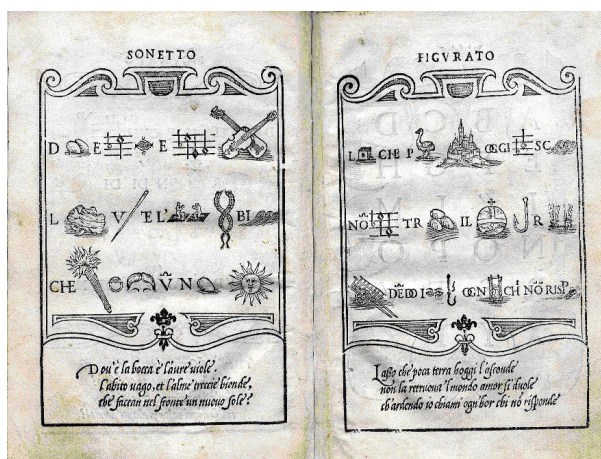 SONETTO
D E E
L V E L' BI
CHE ṼN
Dou'è la bocca è l'aure uiole.
l'abito uago, et l'alme treccie bionde,
che faccan nel fronte un nuouo sole?
FIGVRATO
L CHE P OGGI SC
NÕ TR IL R
DẼDO I OGN CHI NÕ RISP
Laßo che poca terra hoggi l'asconde
non la retruoua l mondo amor si duole
ch'ardendo io chiami ogn'hor chi nõ risponde